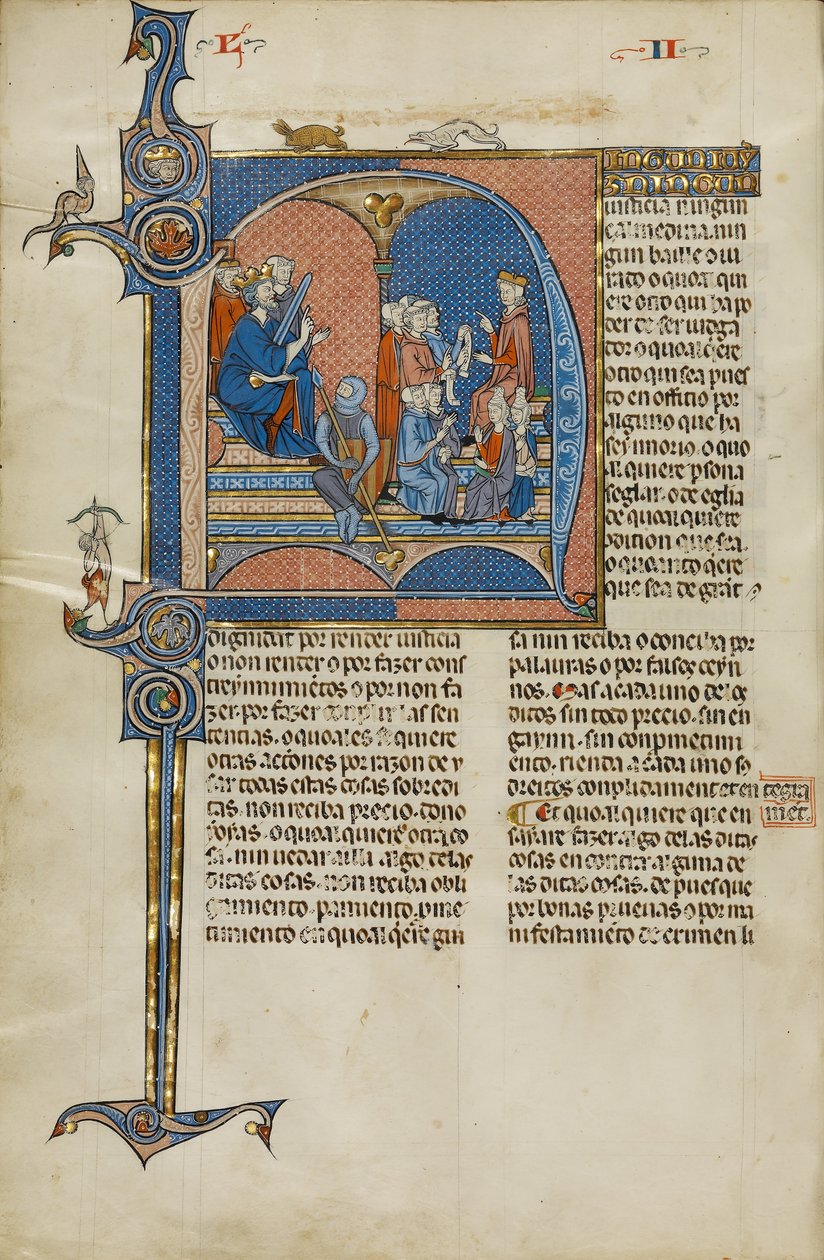 L II
N Gun iuȝ
z ningun
iusticia ningun
çalmedina nin
gun baille o iu
rado o quoal qui
ere otro qui ha po
der de ser iudga
dor o quoal q̃ere
otro qui sea pues
to en offitio por
alguno que ha
seynnorio. o quo
al quiere psona
seglar. o de eglia
de quoal quiere
9dition que sea.
o quanto q̃ere
que sea de grãt
dignidat por render iusticia
o non render o por fazer cons
treynnimiẽtos o por non fa
zer. por fazer conplir las sen
tencias. o quoales se quiere
otras actiones por razon de y
far todas estas cosas sobredi
tas. non reciba precio. dono
ioyas. o quoal quiere otra co
sa. nin uedar ailli algo delas
ditas cosas. non reciba obli
gamiento. pamiento. pme
timiento en quoal q̃ere gui
sa nin reciba o conciba por
palauras o por falsos ceyn
nos. Mas a cada uno delos
ditos sin todo precio. sin en
gaynno. sin conpmetimi
ento. rienda a cada uno so
dreitos conplidament et en tegra
mẽt.
Et quoal quiere que en
sayare fazer algo delas ditas
cosas en contra alguna de
las ditas cosas. de pues que
por bonas prueuas o por ma
nifestamiẽto de crimen li